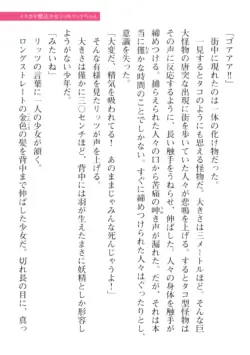 イカせて魔法少女シスル☆リッツちゃん
「ゴアアア!!」
街中に現れたのは一体の化け物だった。
一見するとタコのようにも思える怪物だ。大きさは三〇メートルほど。そんな巨
大怪物の唐突な出現に街を歩いていた人々が悲鳴を上げる。するとタコ型怪物は
その声に反応するように、長い触手をうねらせ、伸ばした。人々の身体を触手が
締めつける。捕らえられた人々の口から苦痛の呻き声が漏れた。だが、それは本
当に僅かな時間のことでしかない。すぐに締めつけられた人々はぐったりとし、
意識を失った。
「大変だ、精気を吸われてる! あのままじゃみんな死んじゃうよ!」
そんな有様を見たリッツが声を上げる。
大きさは僅かに三〇センチほど。背中には羽が生えたまさに妖精としか形容し
ようがない少年だ。
「みたいね」
リッツの言葉に一人の少女が頷く。
ロングストレートの金色の髪を背中まで伸ばした少女だ。切れ長の目に、真っ